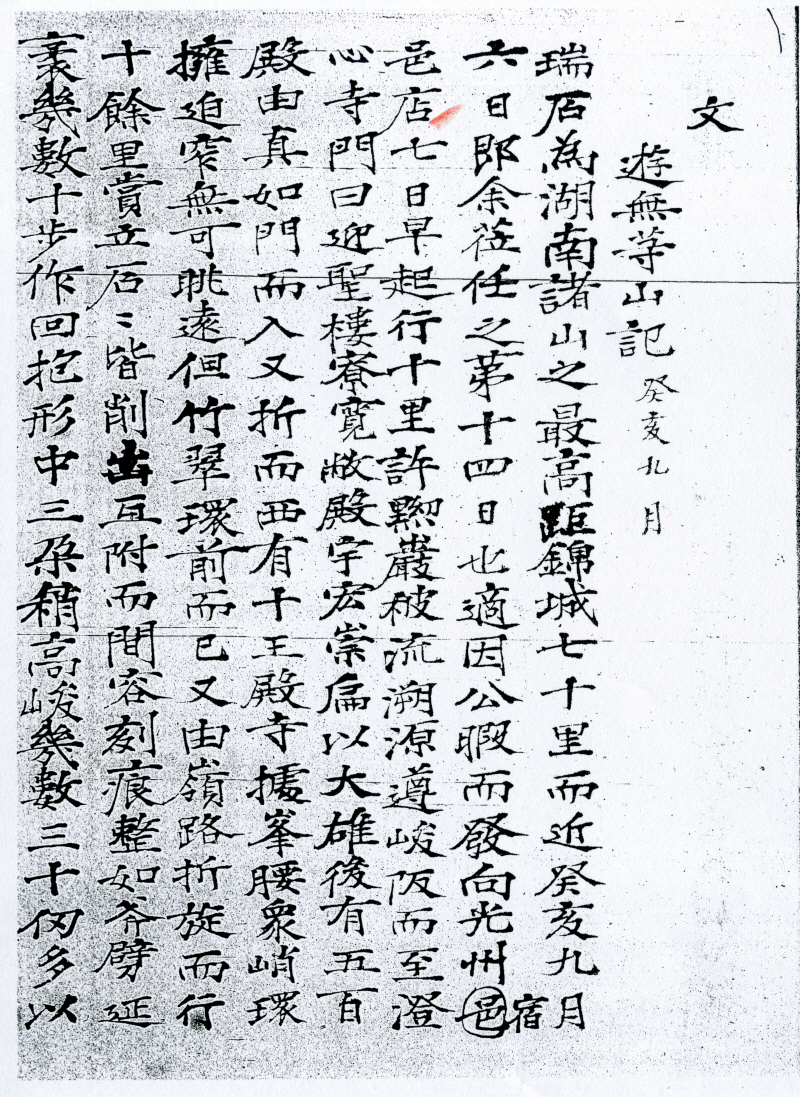 文
遊無等山記 癸亥九月
瑞石為湖南諸山之最高距錦城七十里而近癸亥九月
六日郎余莅任之第十四日也適因公暇而發向光州宿邑
邑店七日早起行十里許黙巖被流溯源遵峻阪而至澄
心寺門曰迎聖樓寮寬敞殿宇宏崇扁以大雄後有五百
殿由真如門而入又折而西有十王殿寺據峯腰衆峭環
擁迫窄無可眺遠但竹翠環前而已又由嶺路折旋而行
十餘里賞立石〻皆削出互附而間容刻痕整如斧劈延
袤幾數十步作回抱形中三朶稍高峻幾數三十仞多以